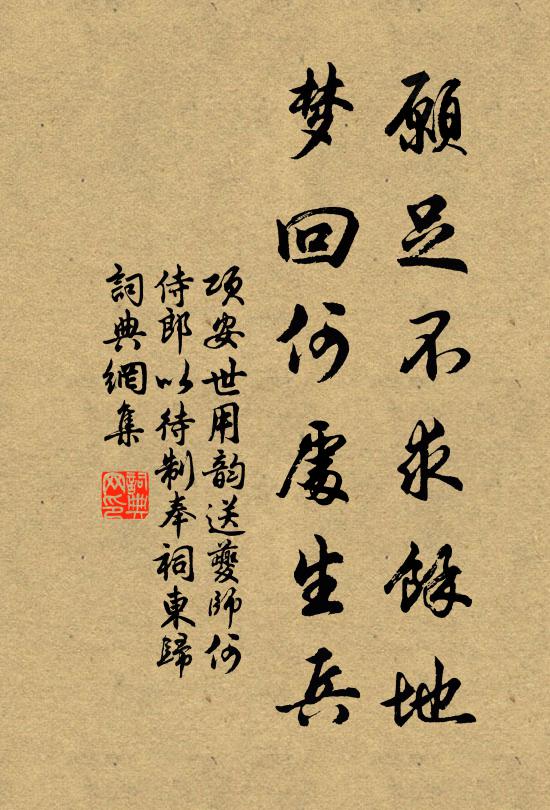 願足不求餘地
梦回何處生兵
項安世用韵送夔師何
侍郎以待制奉祠東歸
詞典網集
詞典
网印